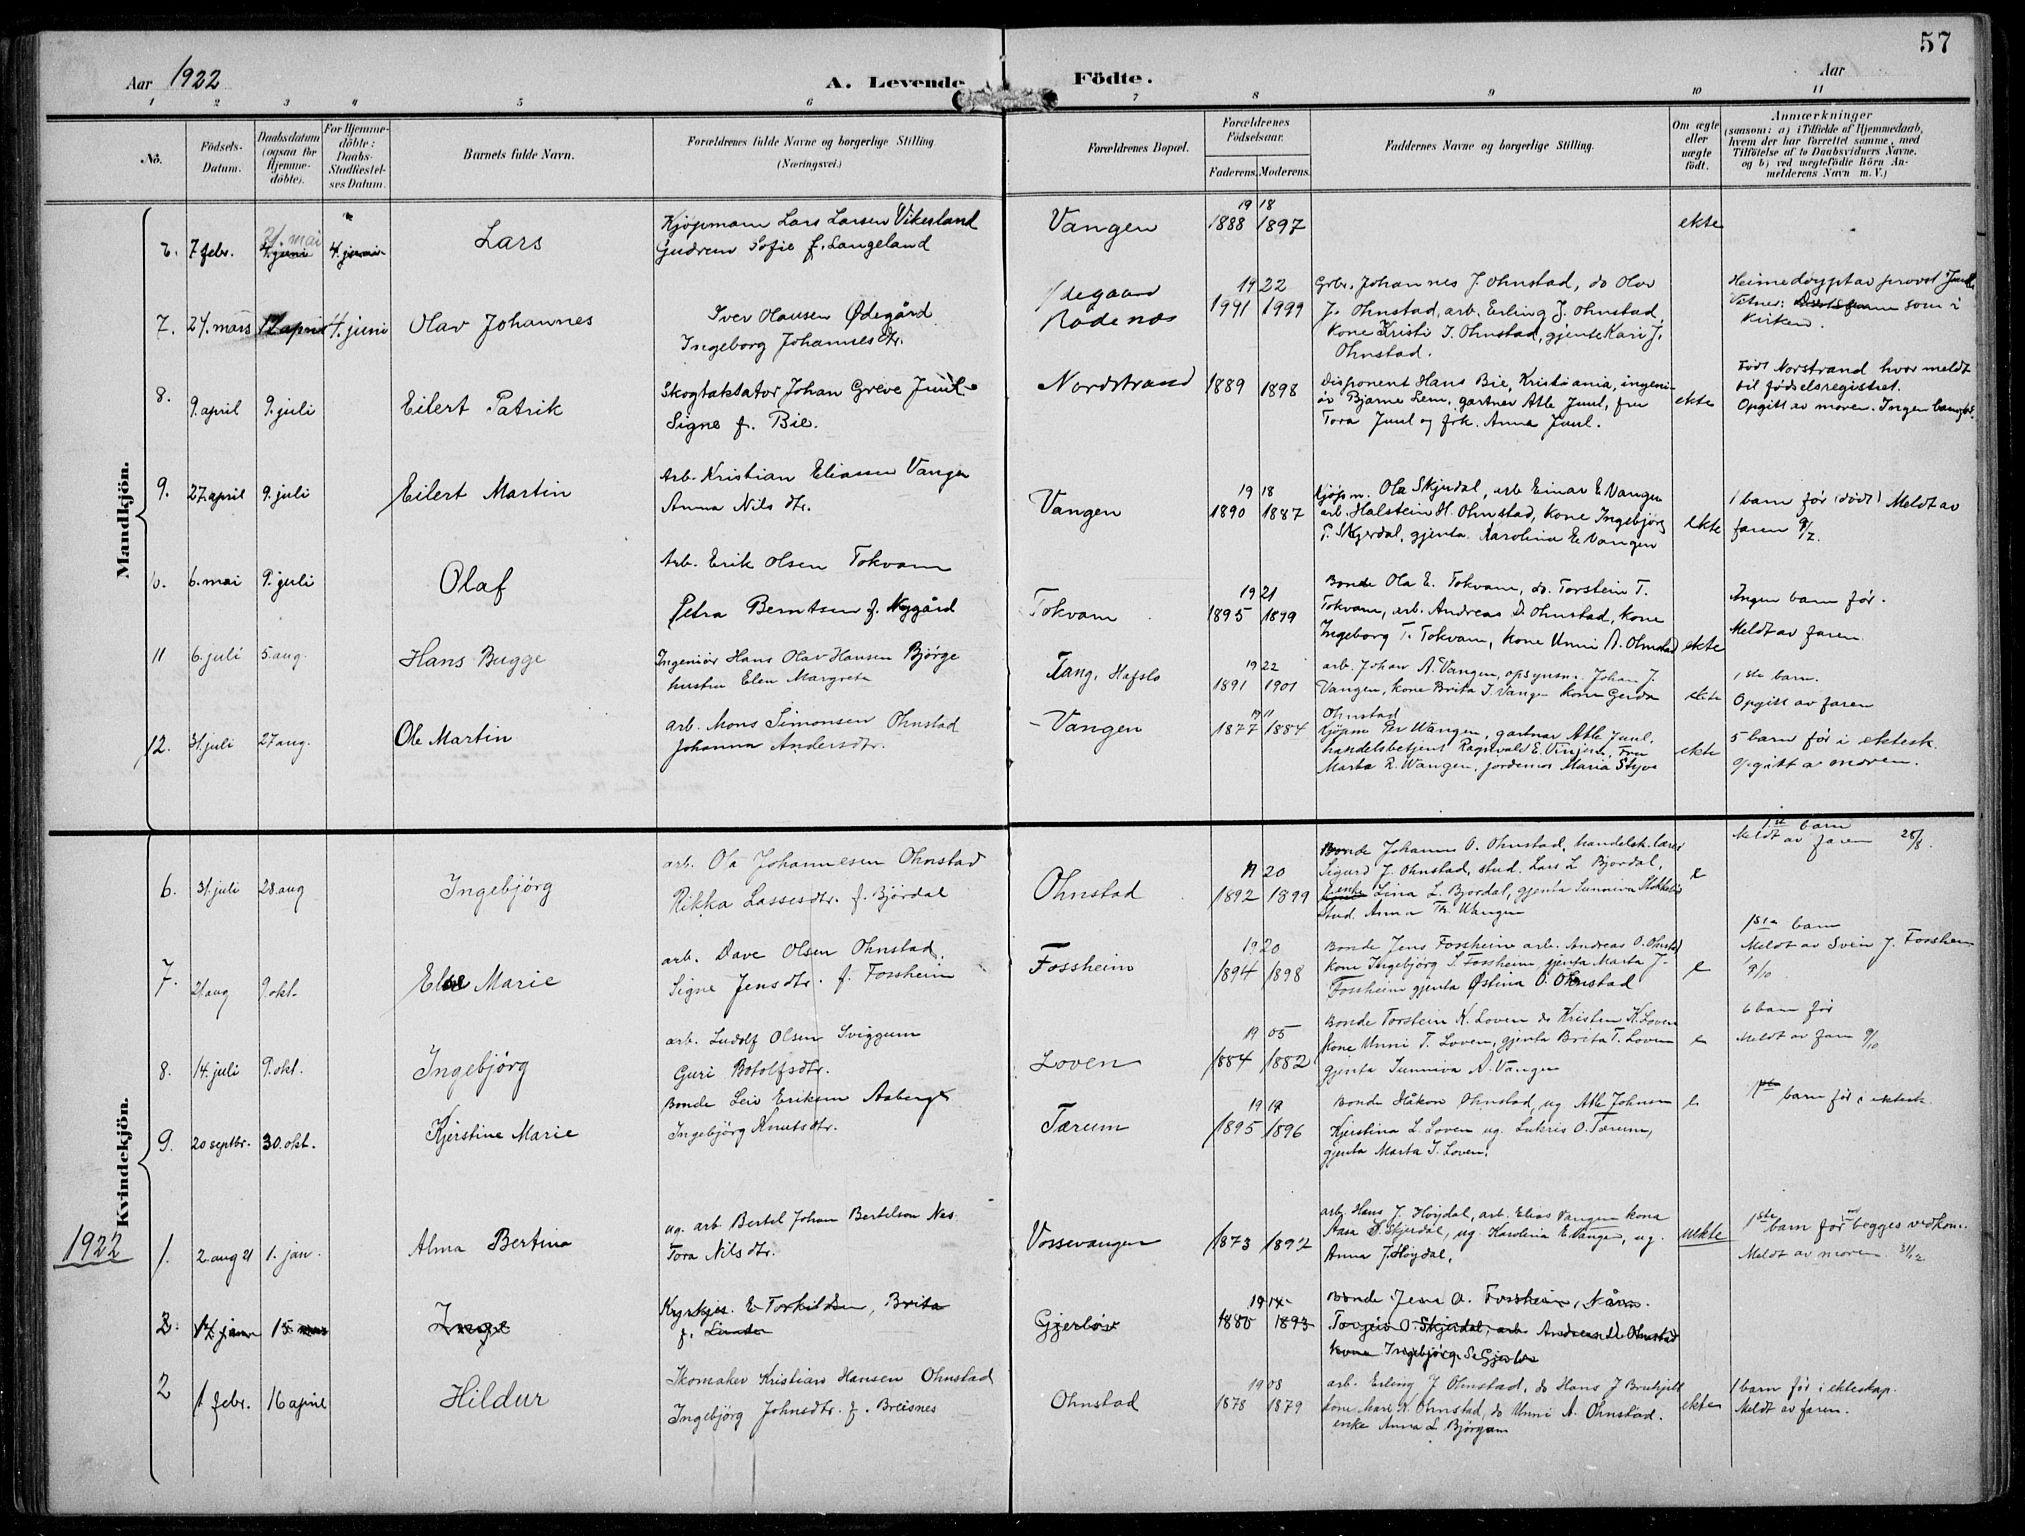 57
Aar 1922
A. Levende Födte.
Aar
1 2 3 4 5 6 7 8 9 10 11
No.
Födsels-Datum.
Daabsdatum (ogsaa for Hjemme-döbte).
For Hjemme-döbte: Daabs-Stadfæstel-ses Datum.
Barnets fulde Navn.
Forældrenes fulde Navne og borgerlige Stilling (Næringsvei.)
Forældrenes Bopæl.
Forældrenes Födselsaar.
Faderens. Moderens.
Faddernes Navne og borgerlige Stilling.
Om ægte eller uægte födt.
Anmærkninger
(saasom: a) i Tilfælde af Hjemmedaab, hvem der har forrettet samme, med Tilföielse af to Daabsvidners Navne. og b) ved uægtefödte Börn An-melderens Navn m. V.)
Mandkjön.
6. 7 febr. 21. mai 4. juni 4. juni Lars
Kjøpmann Lars Larsen Vikesland
Gudrun Sofie f. Langeland
Vangen
19 18
1888 1897
ekte
7. 24. mars 17 april 4. juni Olav Johannes
Iver Olausen Ødegård
Ingeborg Johannesdtr.
19 22
1991 1999
Grbr. Johannes J. Ohnstad, do Olav
J. Ohnstad, arb. Erling J. Ohnstad,
kone Kristi I. Ohnstad, gjente Kari J.
Ohnstad.
Heimedøypt av provst Juul
Vitnes: som i
kirken.
8. 9. april 9. juli Eilert Patrik
Skogtaksator Johan Greve Juul
Signe f. Bie.
Nordstrand
1889 1898
Disponent Hans Bie, Kristiania, ingeni-
ør Bjarne Lem, gartner Atle Juul, fru
Tora Juul og frk. Anna Juul.
ekte
Født Norstrand hvor meldt
til fødselsregistret.
Opgitt av moren. Ingen barn før.
9. 27. april 9. juli Eilert Martin
Arb. Kristian Eliassen Vangen
Anna Nils dtr.
Vangen
19 18
1890 1887
Kjøpm. Ola Skjerdal, arb Einar E Vangen
arb. Halstein H. Ohnstad, kone Ingebjørg
T. Skjerdal, gjenta Karolina E Vangen
ekte
1 barn før (dødt) Meldt av
faren 9/7.
6. mai 9. juli Olaf
Arb. Erik Olsen Tokvam
Petra Berntsen f. Nygård
Tokvam
19 21
1895 1899
Bonde Ola E. Tokvam, do. Torstein T.
Tokvam, arb. Andreas D. Ohnstad, kone
Ingeborg T. Tokvam, kone Unni A. Ohnstad
ekte
Ingen barn før.
Meldt av faren
11 6. juli 5. aug. Hans Bugge
Ingeniør Hans Olav Hansen Bjørge
hustru Elen Margrete
Tang, Hafslo
19 22
1891 1901
arb. Johan A. Vangen, opsynsm. Johan J.
Vangen, kone Brita J. Vangen kone Gerda
Ohnstad
ekte
1ste barn.
Opgitt av faren
12. 31. juli 27 aug. Ole Martin
arb. Mons Simonsen Ohnstad
Johanna Andersdtr.
Vangen
19 11
1877 1884
Kjøpm Per Wangen, gartner Atle Juul,
handelsbetjent Ragnvald E. Vinjum, Fru
Marta R. Wangen, jordemor Maria Styve
ekte
5 barn før i ektesk.
opgitt a moren.
Kvindekjön.
6. 31. juli 28. aug Ingebjörg
arb. Ola Johannesen Ohnstad
Rikka Lassesdtr. f. Björdal
Ohnstad
19 20
1892 1899
Bonde Johannes O. Ohnstad, handelsk. lærer
Sigurd J. Ohnstad, stud. Lars L Bjordal,
Gjenta Lina L. Bjordal, gjenta Sunniva Stokkebø
Stud. Anna Th. Wangen
e
1st barn
Meldt av faren 28/8.
7. 21 aug 9. okt. Else Marie
arb. Dave Olsen Ohnstad.
Signe Jensdtr. f. Fossheim
Fossheim
19 20
1894 1898
Bonde Jens Fossheim arb. Andreas O. Ohnstad
kone Ingebjörg S Fossheim, gjenta Marta J-
Fossheim gjenta Østina O. Ohnstad
e
1ste barn
Meldt av Svein J. Fossheim
9/10
8. 14. juli 9. okt. Ingebjörg
arb. Ludolf Olsen Sviggum
Guri Botolfsdtr.
Loven
19 05
1884 1882
Bonde Torstein K. Loven do Kristen K. Loven
kone Unni T. Loven, gjenta Brita T. Loven
gjenta Sunniva A. Vangen
e
6 barn før
Meldt av faren 9/10
9. 20 septbr. 30. okt. Kjerstine Marie
Bonde Leiv Eriksen Aaberge
Ingebjörg Knutsdtr.
Tærum
19 19
1895 1896
Bonde Håkon Ohnstad, ug Atle Johnsen
Kjerstina L. Loven ug. Lukris O. Tærum,
gjenta Marta I. Loven.
e
1 barn før i ektesk.
1922
1. 2. aug 21 1. jan. Alma Bertina
ug. arb Bertel Johan Bertelson Nes.
Tora Nilsdtr.
Vossevangen
1873 1892
arb Hans J. Høydal, arb. Elias Vangen kona
Aasa S. Skjerdal, ug. Karolina E Vangen, ug.
Anna J. Høydal.
uekte
1ste barn for begges vedkom.
Meldt av moren 31/12
2. 14 jan Inge
Kyrkjes. E Torkildsen, Brita
f. Linde
Gjerløv
19 14
1880 1893
Bonde Jens O. Fossheim,
Torgeir O. Skjerdal, arb. Andreas D. Ohnstad
kona Ingebjörg S. Gjerløv
2 1 febr. 16 april Hildur
Skomaker Kristian Hansen Ohnstad
Ingebjörg Johnsdtr. f. Breisnes
Ohnstad
19 08
1878 1879
arb. Erling J Ohnstad, do Hans J Brekje
kone Mari K. Ohnstad, do Unni A. Ohnstad.
enke Anna L Bjørgum
ekte
1 barn før i ekteskap.
Meldt av faren.